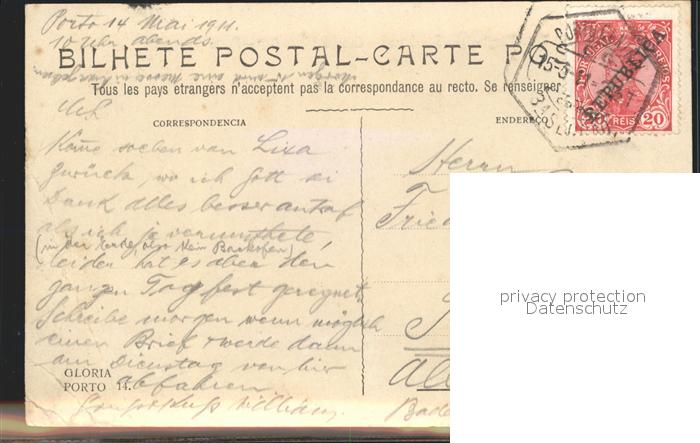 Porto 14 Mai 1911.
10 Uhr abends.
BILHETE POSTAL-CARTE PO
Morgen wird eine Messe
Tous les pays étrangers n'acceptent pas la correspondance au recto. Se renseigner
CORRESPONDENCIA
ENDEREÇO
REPUBLICA
REIS 20
Kome soeben von Lixa
zurück, wo ich Gott sei
Dank alles besser antraf
als ich je vermuthete,
(in der Kirche, also kein Backofen)
leider hat es aber den
ganzen Tag fest geregnet
Schreibe morgen wenn möglich
einen Brief & werde dann
am Dienstag von hier
abfahren.
Gruss & Kuss William.
Herrn
Fried
Bade
GLORIA
PORTO 14.
privacy protection
Datenschutz